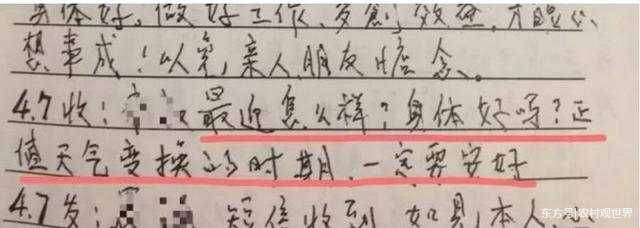 身体好，做好工作，多创效益，才能心
想事成！以免亲人朋友惦念。
4.7收：最近怎么样？身体好吗？正
值天气变换的时期，一定要安好
4.7发：短信收到 如见本人
东方号|农村观世界